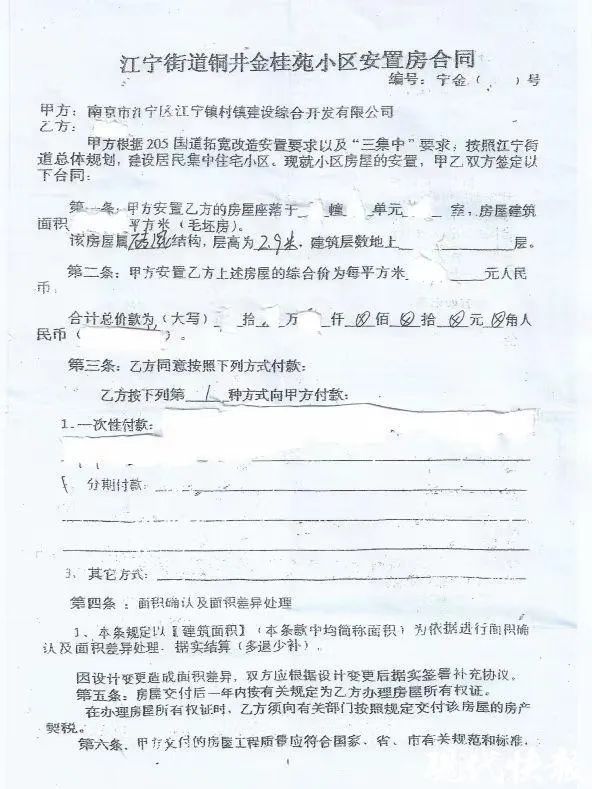 江宁街道铜井金桂苑小区安置房合同
编号：宁金（ ）号
甲方：南京市江宁区江宁镇村镇建设综合开发有限公司
乙方：
甲方根据205国道拓宽改造安置要求以及“三集中”要求；按照江宁街
道总体规划，建设居民集中住宅小区。现就小区房屋的安置，甲乙双方签定以
下合同：
第一条：甲方安置乙方的房屋座落于 幢 单元 室，房屋建筑
面积 平方米（毛坯房）。
该房屋属砖混结构，层高为2.9米，建筑层数地上 层。
第二条：甲方安置乙方上述房屋的综合价为每平方米 元人民
币；
合计总价款为（大写） 拾 万 仟 ⊗佰 ⊗拾 ⊗元 ⊗角人
民币（ ）。
第三条：乙方同意按照下列方式付款：
乙方按下列第 1 种方式向甲方付款：
1.一次性付款：
分期付款：
3、其它方式：
第四条：面积确认及面积差异处理
1、本条规定以【建筑面积】（本条款中均简称面积）为依据进行面积确
认及面积差异处理．据实结算（多退少补）．
因设计变更造成面积差异，双方应根据设计变更后据实签署补充协议。
第五条：房屋交付后一年内按有关规定为乙方办理房屋所有权证。
在办理房屋所有权证时，乙方须向有关部门按照规定交付该房屋的房产
契税。
第六条、甲方交付的房屋工程质量应符合国家、省、市有关规范和标准．
1
现代快报